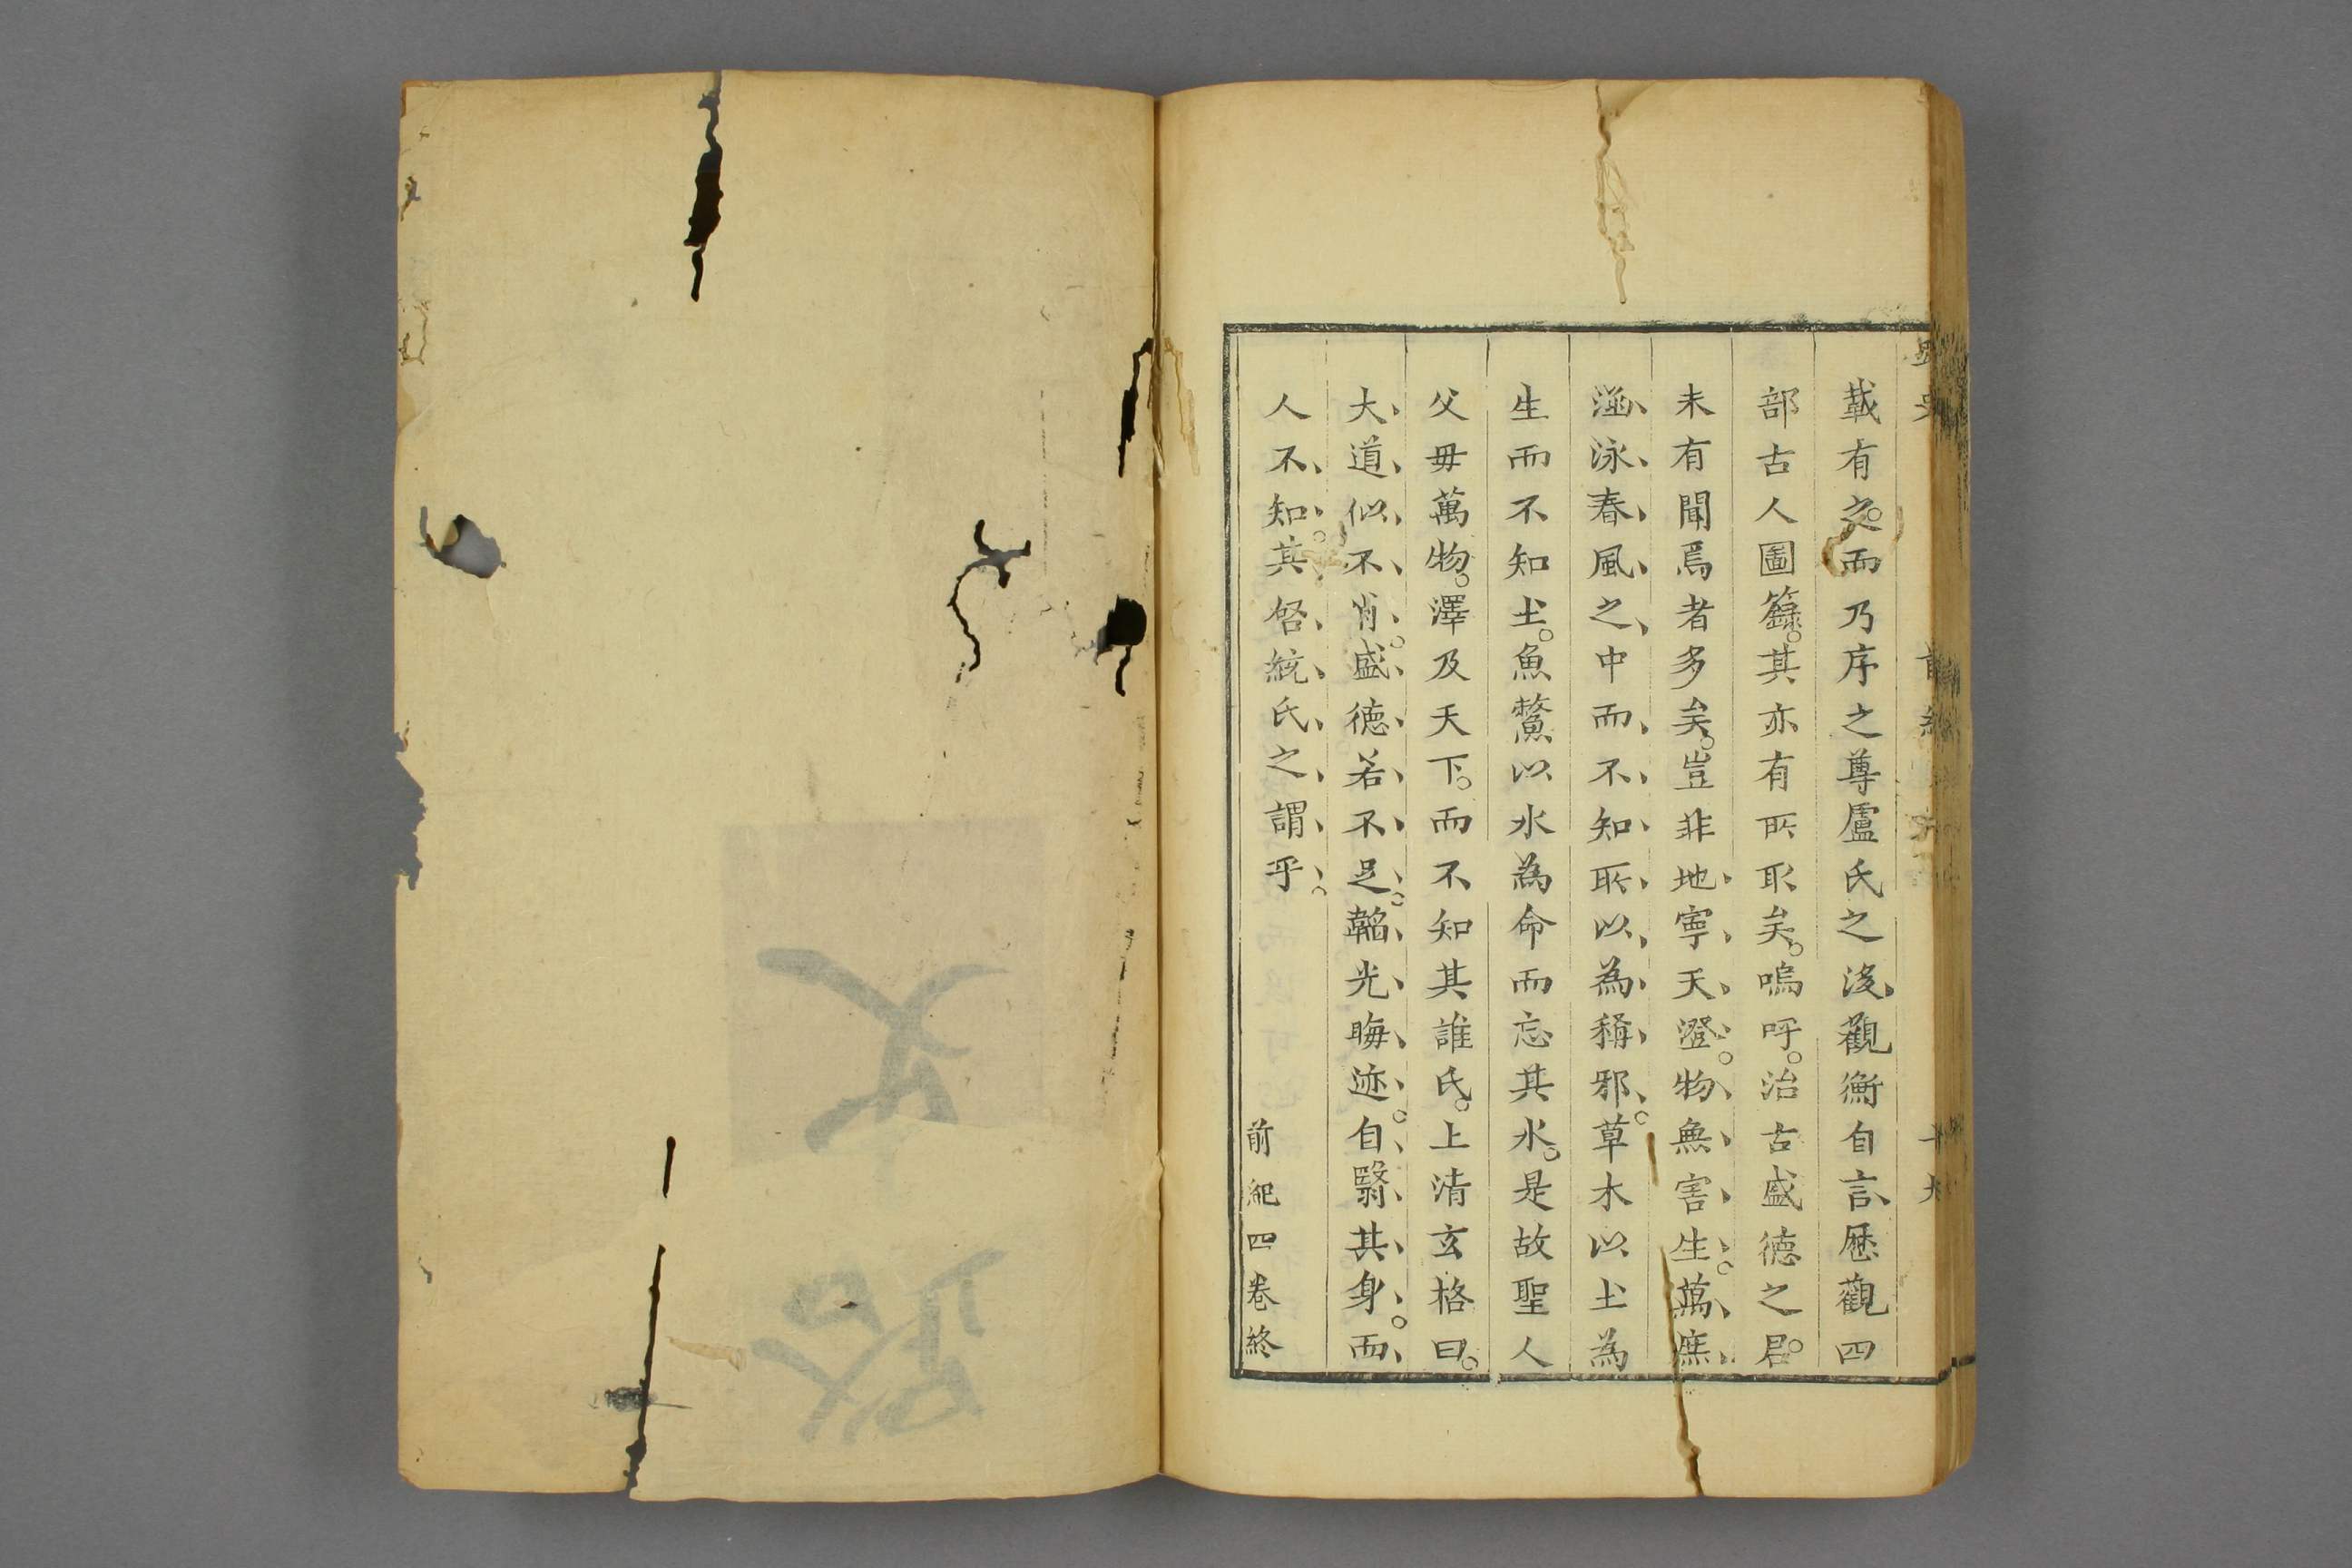 載有之。而乃序之尊盧氏之後、觀衡自言、歷觀四
部古人圖籙。其亦有所取矣。嗚呼。治古盛德之君。
未有聞焉者多矣。豈非地、寧、天、澄、。物、無、害、生、。萬、庶、
涵、泳、春、風、之、中而、不、知、所、以、為、稱、邪、。草木以土為
生而不知土。魚鱉以水為命而忘其水。是故聖人
父毋萬物。澤及天下。而不知其誰氏。上清玄格曰。
大、道、似、不、肖、。盛、德、若、不、足、。韜、光、晦、迹、。自、翳、其、身、。而、
人不、知、。其、啓、統、氏、之、謂、乎、。
前紀四卷終